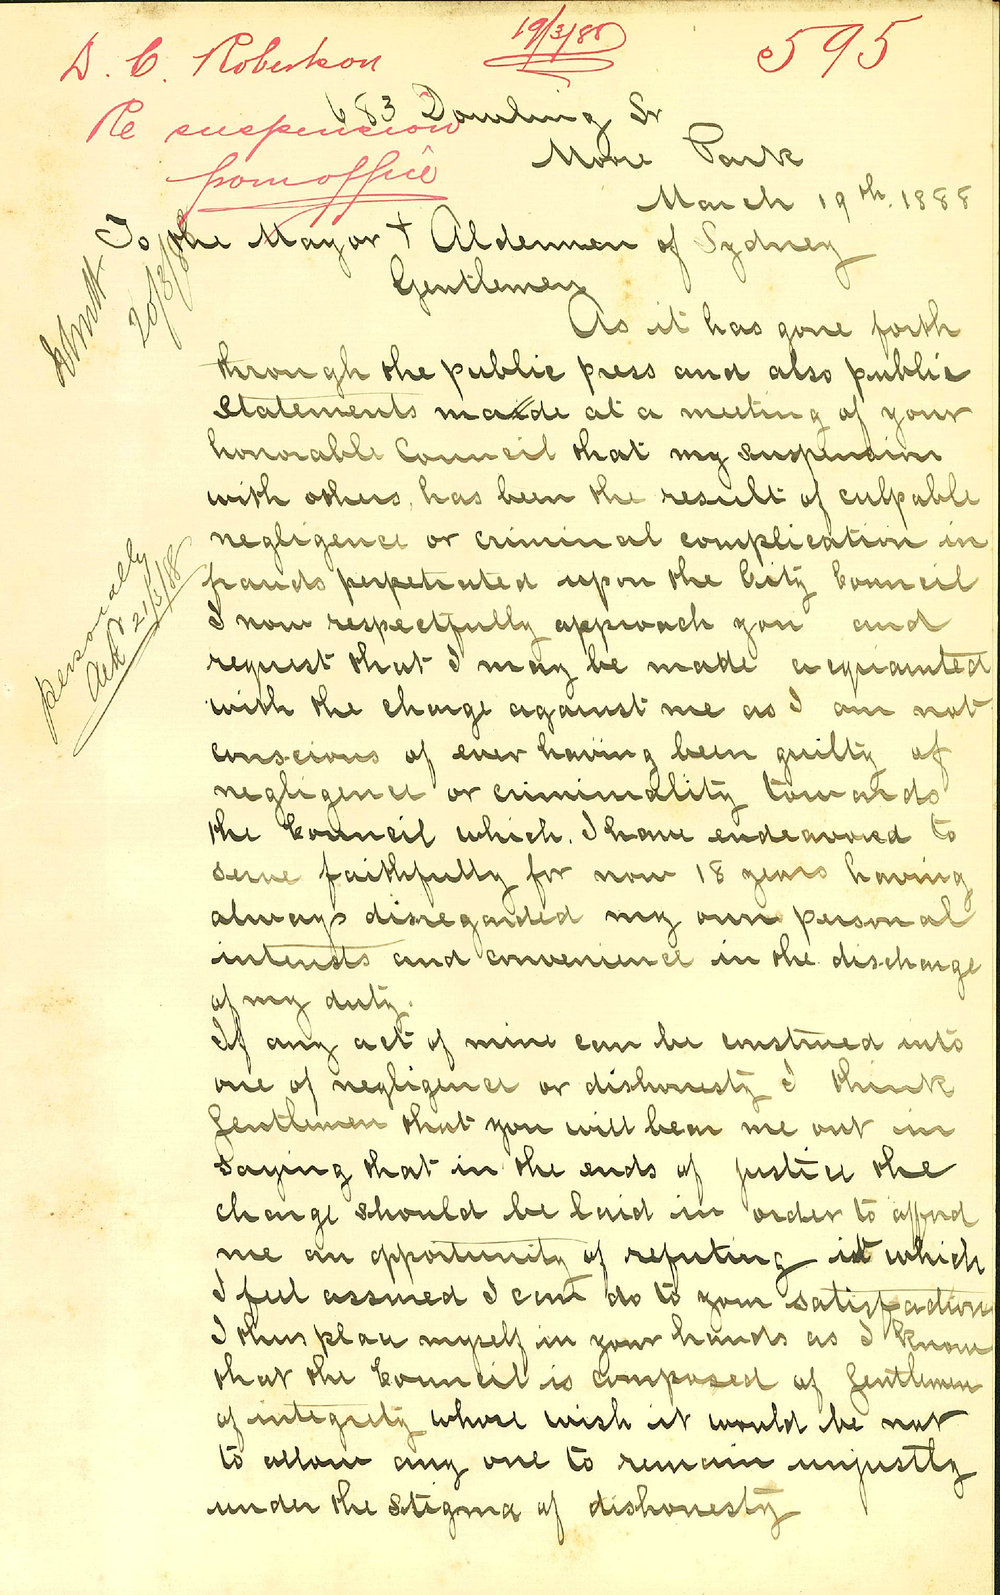 19/3/88
595
D. C. Robertson
Re suspension
from office
683 Dowling St
More Park
March 19th. 1888
To the Mayor + Aldermen of Sydney
Gentlemen
20/3/88
As it has gone forth
through the public press and also public
statements made at a meeting of your
honorable Council that my suspension
with others, has been the result of culpable
negligence or criminal complication in
frauds perpetrated upon the City Council
I now respectfully approach you and
request that I may be made acquianted
with the charge against me as I am not
conscious of ever having been guilty of
negligence or criminality towards
the Council which. I have endeavored to
serve faithfully for now 18 years having
always disregarded my own personal
intersts and convenience in the discharge
of my duty.
personally
Ackd 21/3/88
If any act of mine can be construed into
one of negligence or dishonesty I think
Gentlemen that you will bear me out in
saying that in the ends of justice the
charge should be laid in order to afford
me an opportunity of refuting it which
I feel assured I can do to your satisfaction
I thus place myself in your hands as I know
that the Council is composed of Gentlemen
of integrity whose wish it would be not
to allow any one to remain unjustly
under the stigma of dishonesty